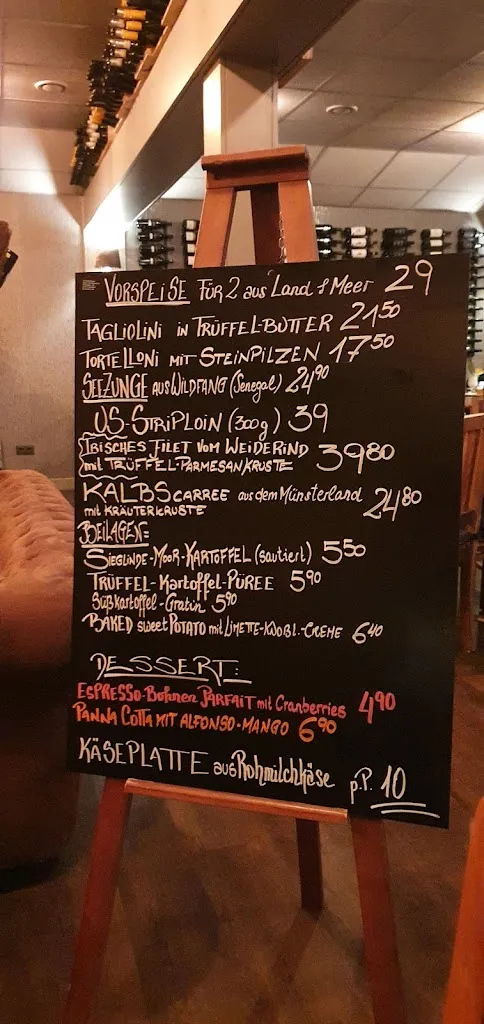 VORSPEiSE FüR 2 aus Land & Meer 29
TAGLiOLiNi iN TRÜFFEL-BUTTER 21 50
TORTELLONi MiT STEiNPiLZEN 17 50
SEEZUNGE AUS WiLDFANG (Senegal) 24 90
US-STRiPLOiN (300g) 39
IRISCHES FiLET VOM WEiDERiND
mit TRÜFFEL-PARMESANKRUSTE 39 80
KALBSCARREE aus dem Münsterland
mit KRÄUTERKRUSTE 24 80
BEiLAGEN:
SiEGLiNDE-MOOR-KARTOFFEL (sautiert) 5 50
TRÜFFEL-KARTOFFEL-PÜREE 5 90
Süßkartoffel-Gratin 5 90
BAKED sweet POTATO mit LiMETTE-KNOBL.-CREME 6 40
DESSERT:
ESPRESSO-Bohnen PARFAiT mit Cranberries 4 90
PANNA COTTA MiT ALFONSO-MANGO 6 90
KÄSEPLATTE aus Rohmilchkäse p.P. 10